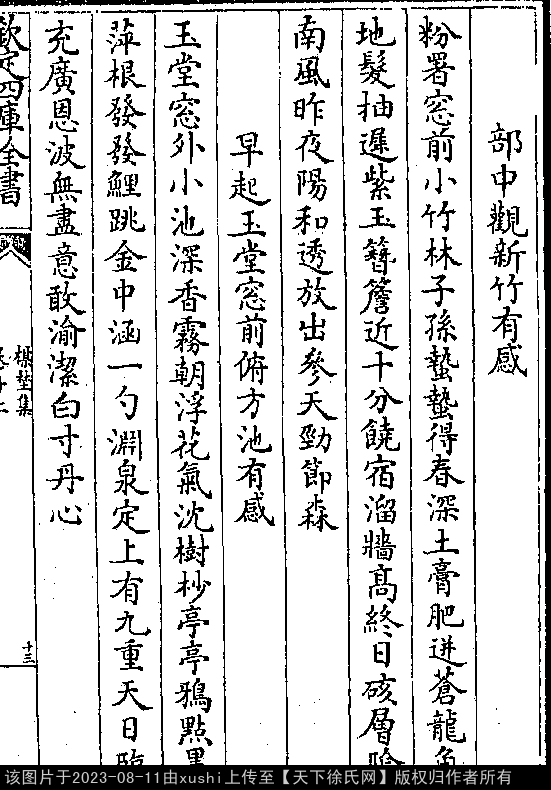 部中觀新竹有感
粉署窓前小竹林子孫蟄蟄得春深土膏肥迸蒼龍角
地髮抽遲紫玉簪簷近十分饒宿溜牆高終日硋層陰
南風昨夜陽和透放出參天勁節森
早起玉堂窓前俯方池有感
玉堂窓外小池深香霧朝浮花氣沈樹杪亭亭鴉點墨
萍根發發鯉跳金中涵一勺淵泉定上有九重天日臨
充廣恩波無盡意敢渝潔白寸丹心
欽定四庫全書
集
十三
该图片于2023-08-11由xushi上传至【天下徐氏网】版权归作者所有